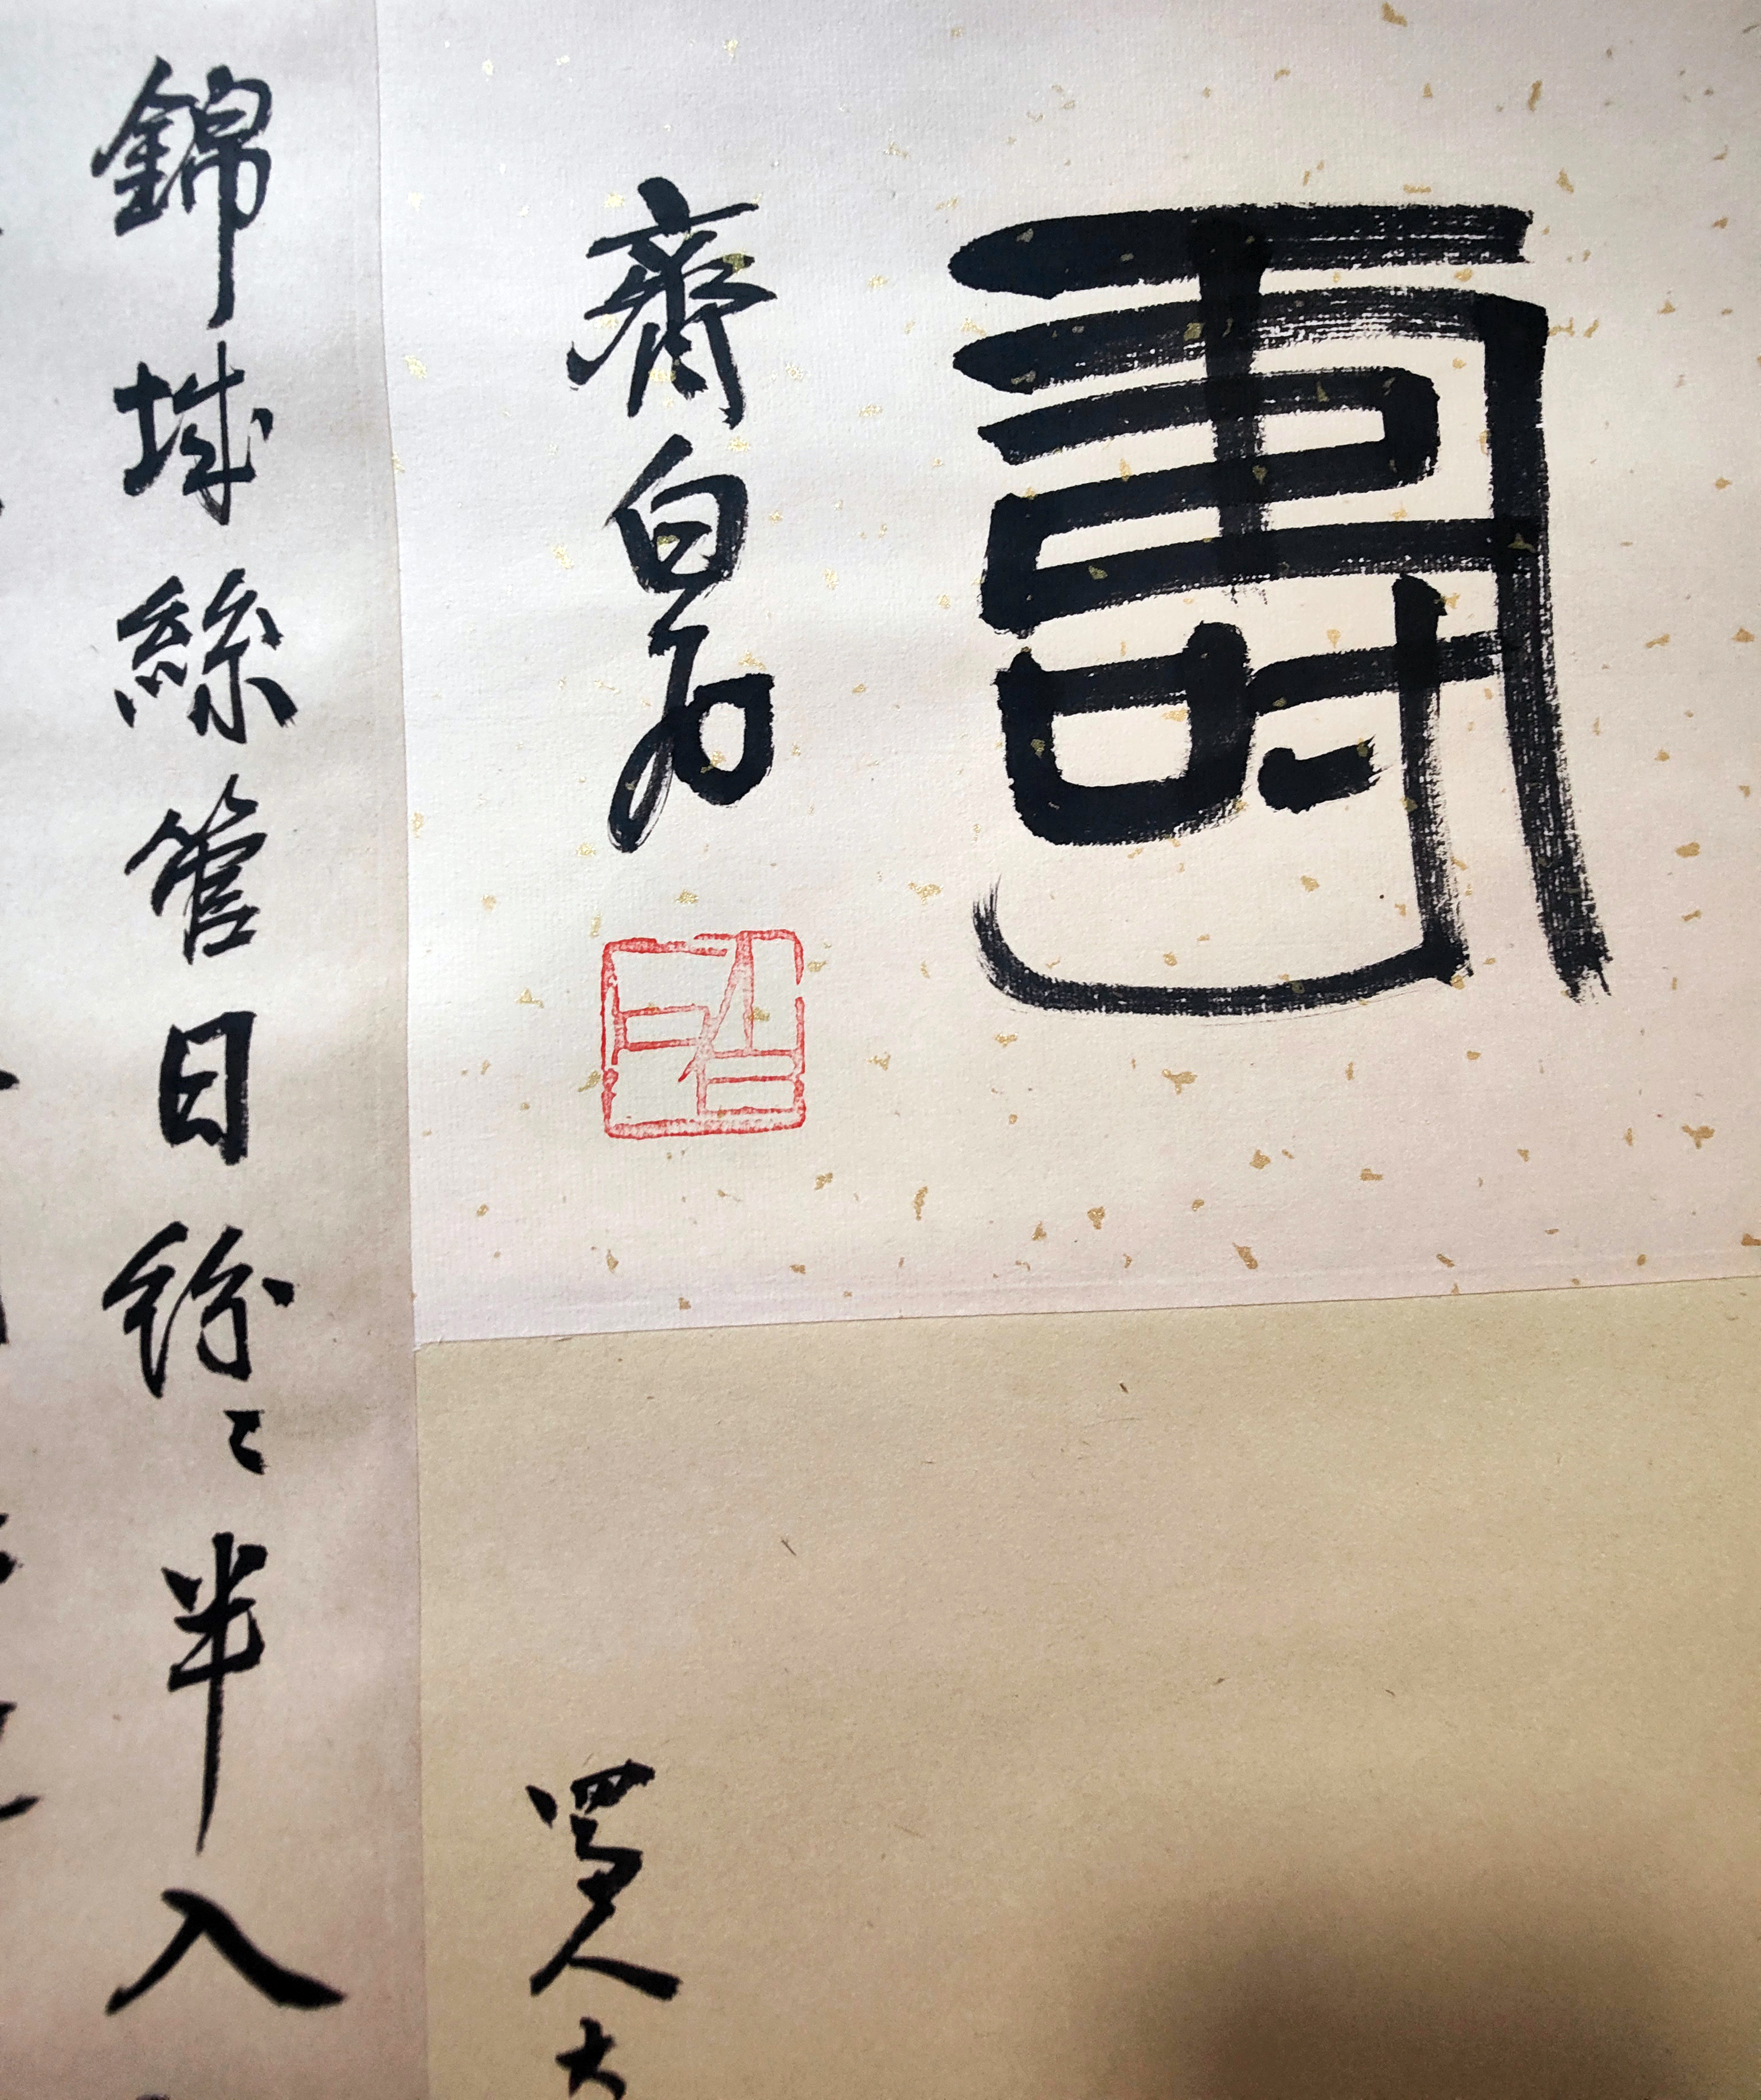 壽
齊白石
白石
錦城絲管日紛〻半入